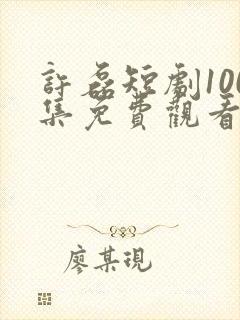 許磊短劇100
集免費觀看
廖某現